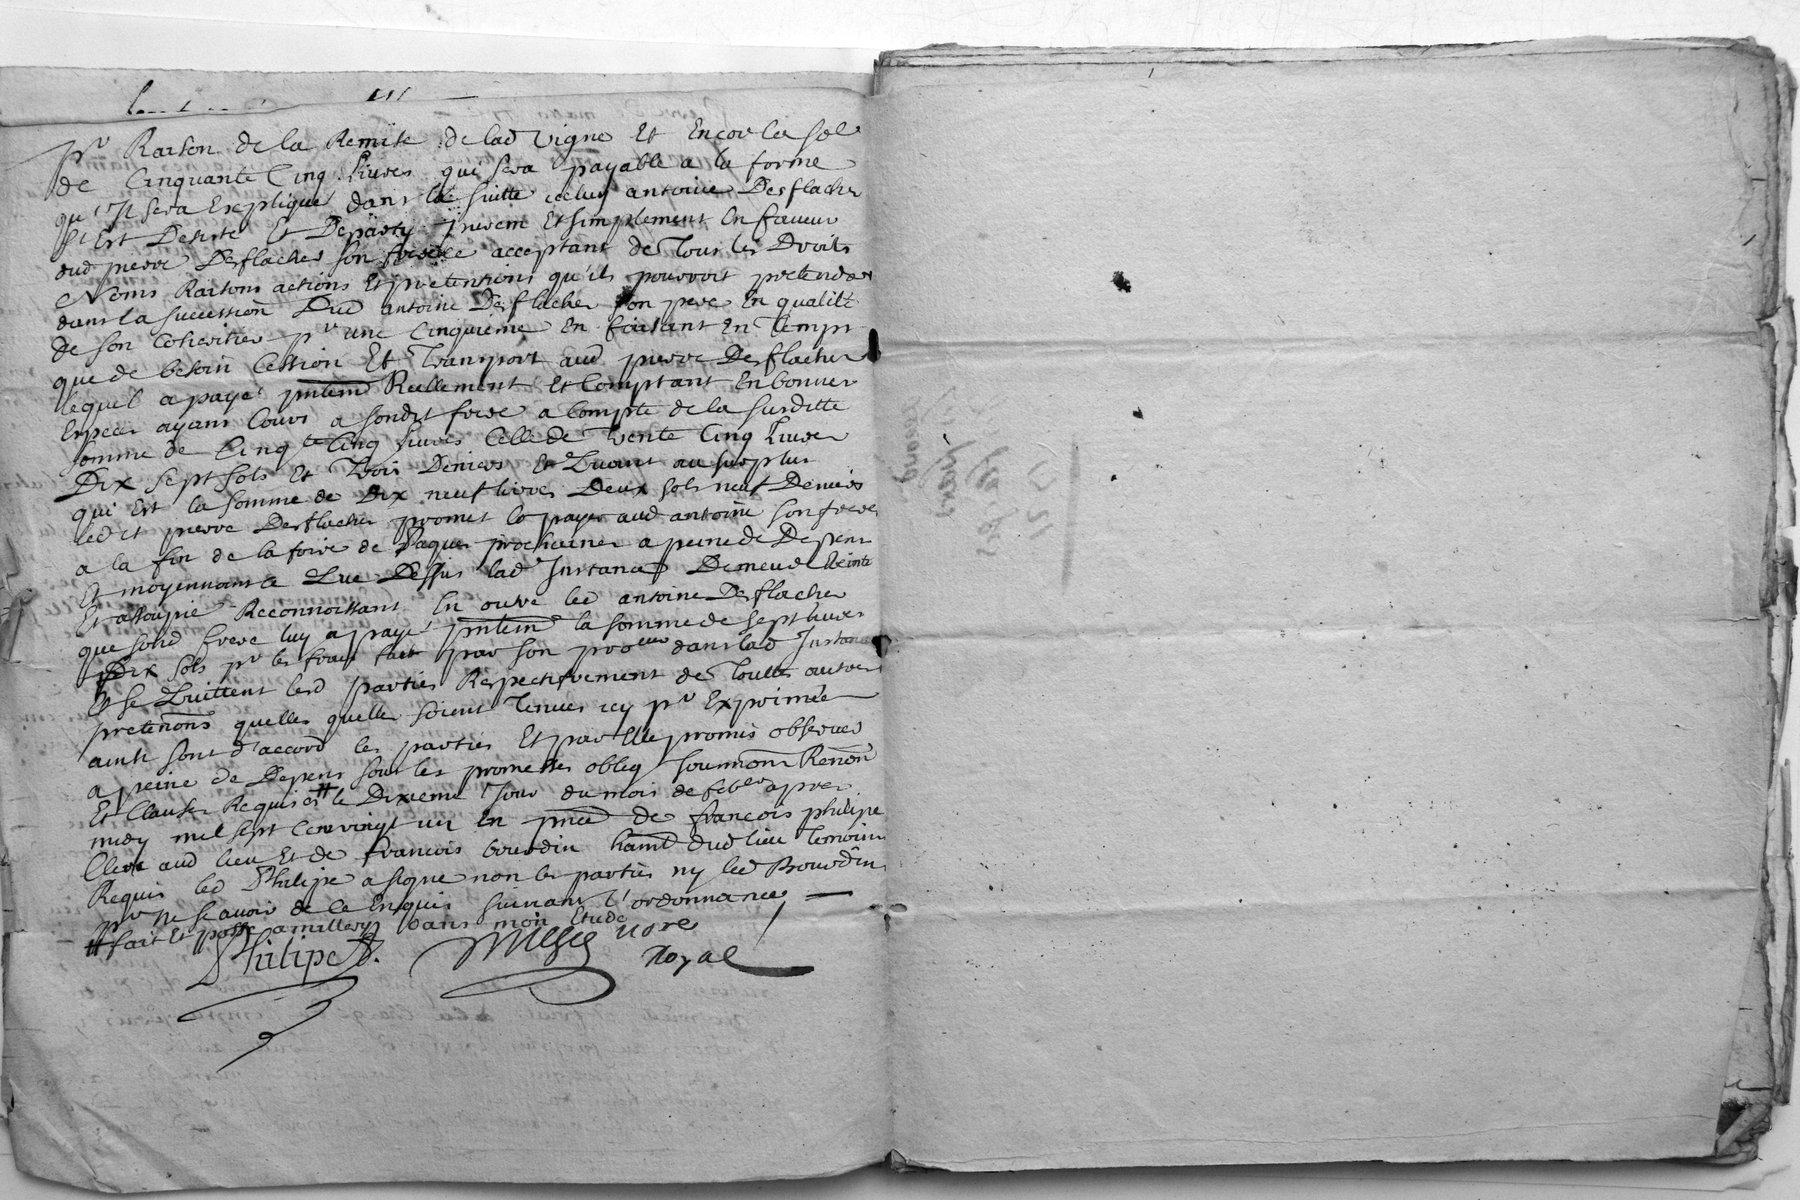 pr Raison de la Remise de lad Vigne Et Encor la so^e
de Cinquante Cinq Livres qui sera payable a la forme
qu'Il sera Expliqué dans la suitte iceluy antoine Desflaches
s'Est Desisté Et Departy purem Et simplement En faveur
dud pierre Desflaches son frere acceptant de Tous les Droits
Noms Raisons actions Et pretentions qu'ils pourroit pretendre
dans la succession Dud antoine Desflaches son pere En qualité
de son Coheritier pr une Cinquieme En faisant En Temps
que de besoin Cession Et Transport aud pierre Desflaches
lequel a payé pntem Reellement Et Comptant En bonnes
Especes ayans Cours a sondt frere a Compte de la susditte
somme de Cinqte Cinq Livres Celle de Trente Cinq Livres
Dix sept sols Et Trois Deniers Et Quant au surplus
qui Est la somme de Dix neuf livres Deux sols neuf Deniers
ledit pierre Desflaches promet la payer aud antoine son frere
a la fin de la foire de Paques prochaines a peine de Depens
Et moyennant ce Que Dessus lad Instance Demeure Eteinte
Et assoupie Reconnoissant En outre led antoine Desflaches
que sond frere luy a payé pntem la somme de sept livres
Dix sols pr les frais fait par son procur dans lad Instance
Et se Quittent lesd parties Respectivement de Touttes autres
pretenons quelles quelle soient Tenues icy pr Exprimée
ainsi sont d'accord les parties Et par Elle promis observer
a peine de Depens sous les promesses obleg soumõn Renõn
Et Clauses Requises # le Dixieme Jour du mois de feber apres
midy mil sept Cens vingt un En pnce de françois philipe
Clerc aud lieu Et de francois bourdin habt dud lieu Temoins
Requis led Philipe a signé non les parties ny led Bourdin
pr ne scavoir de ce Enquis suivant l'ordonnance
# fait Et passé a millery dans mon Etude
Philipe
nore
Royal